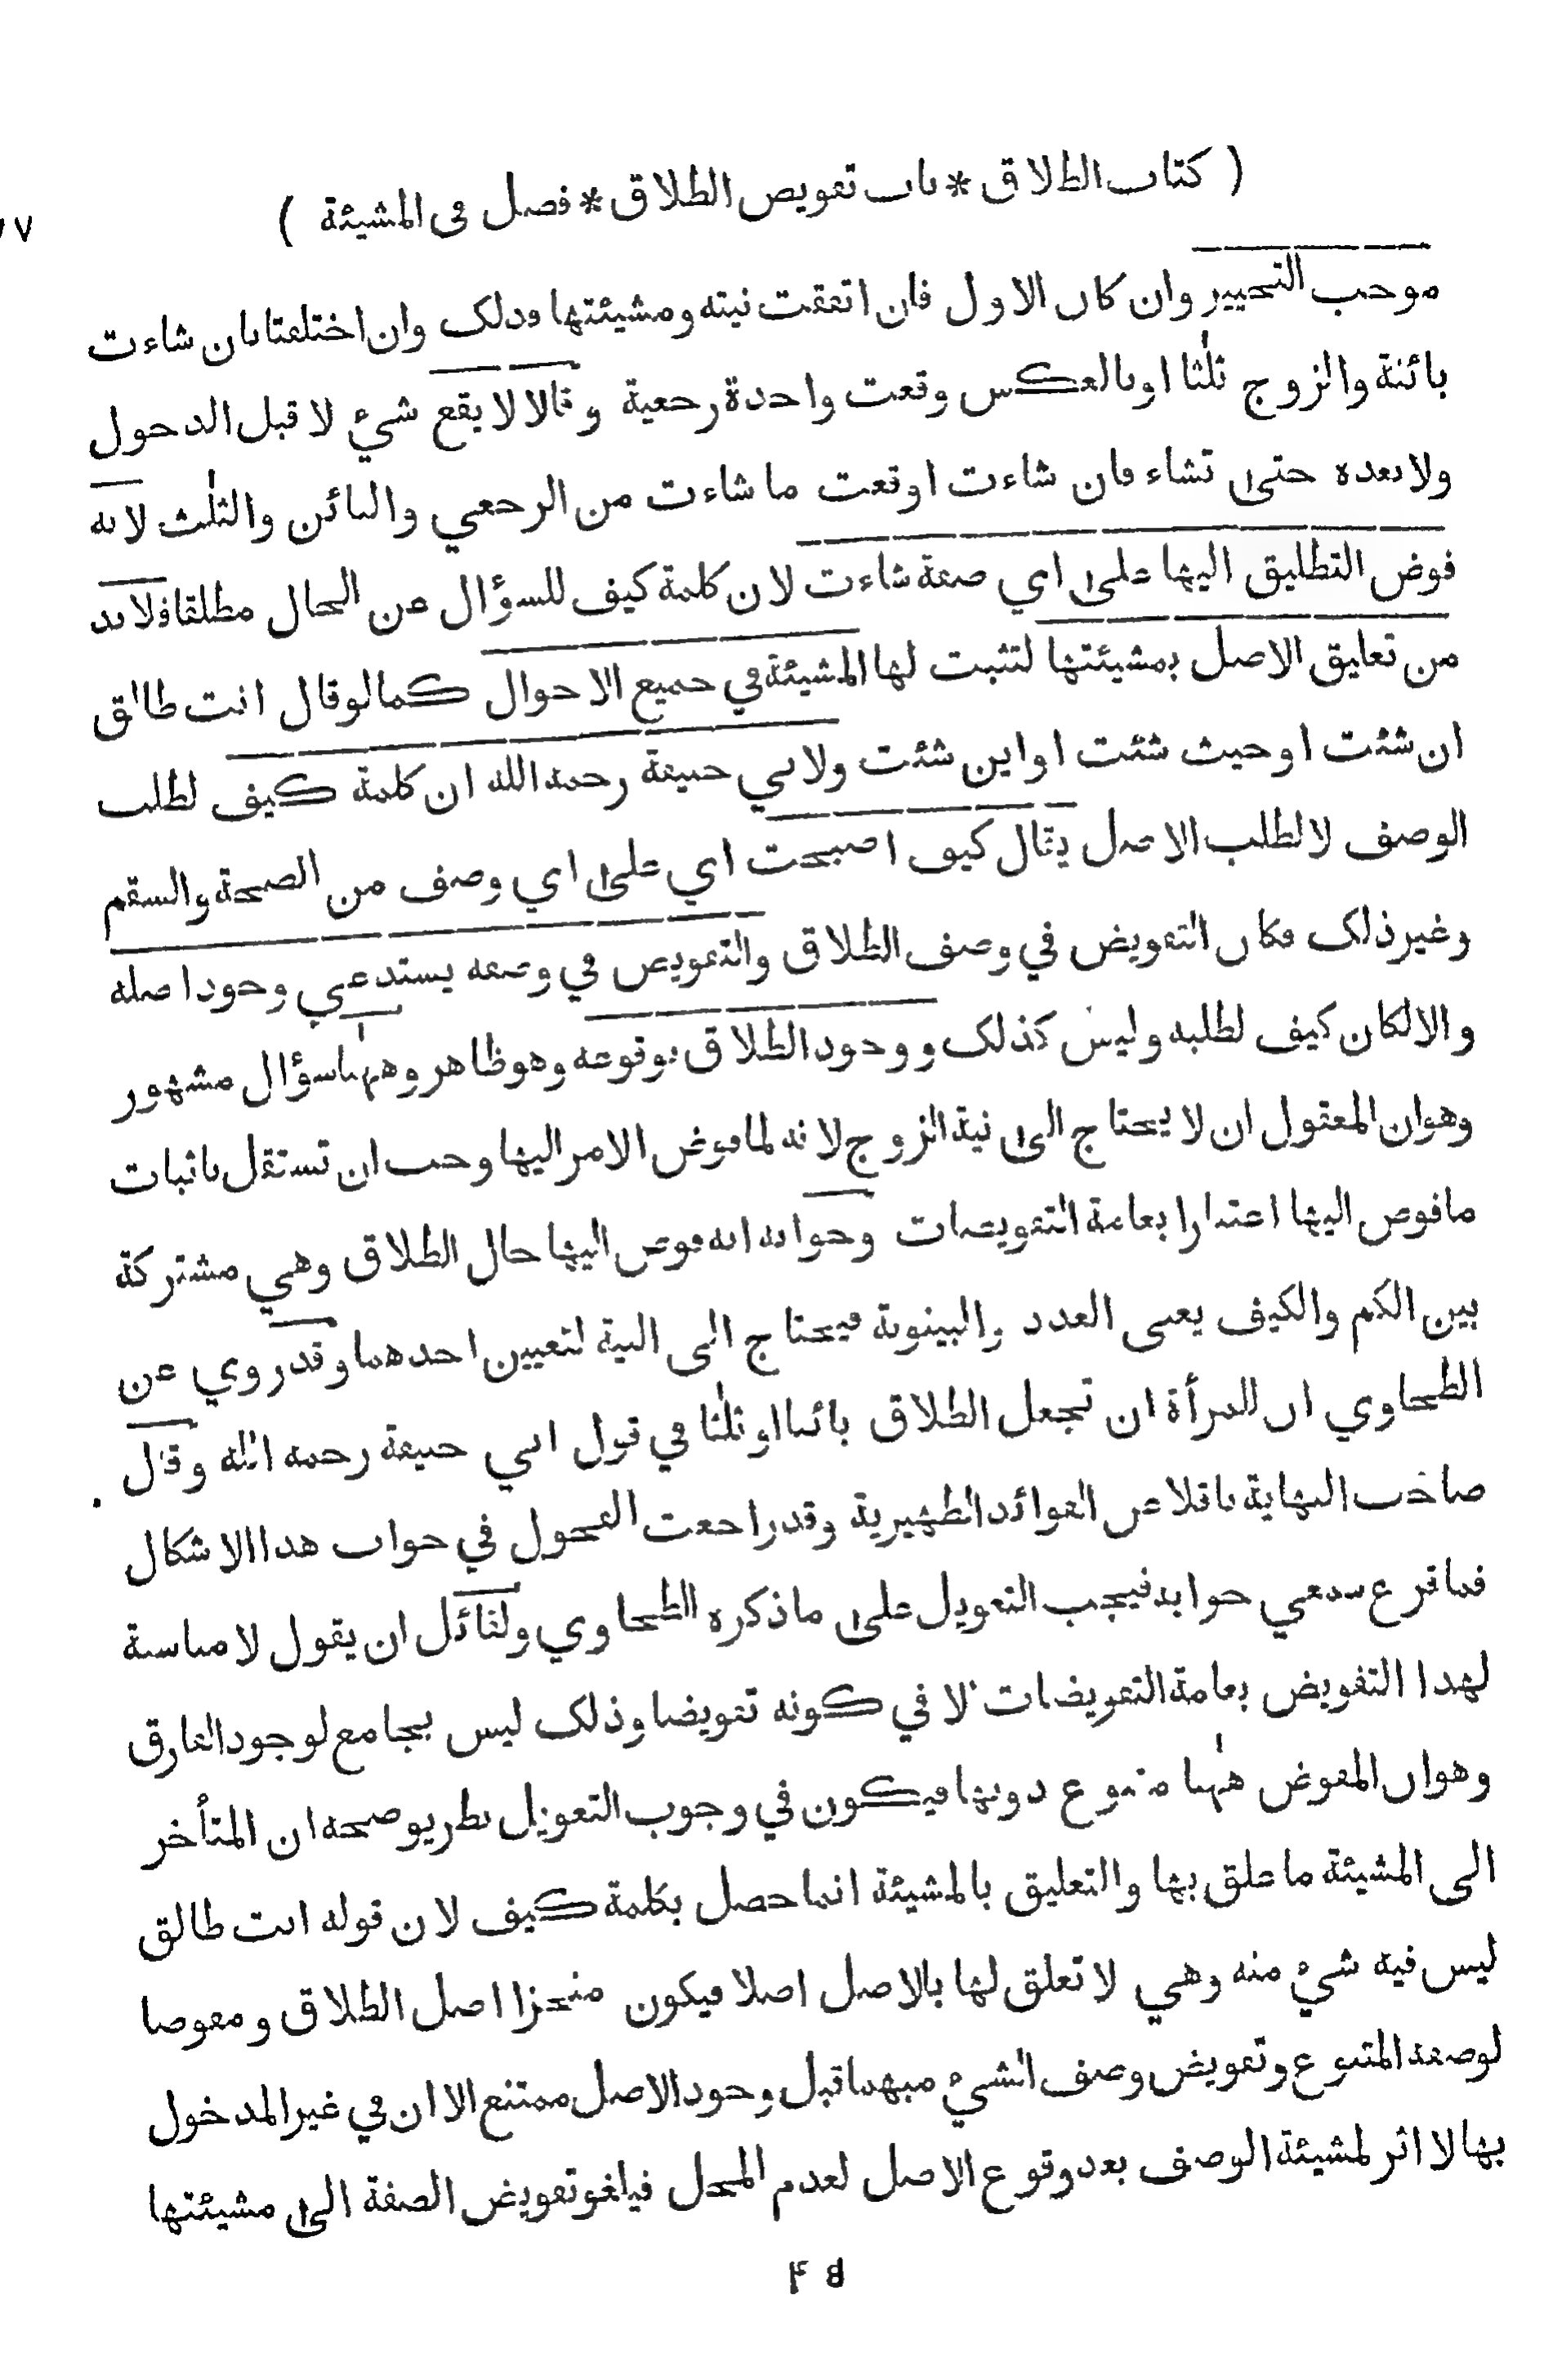 ( كتاب الطلاق * باب تفويض الطلاق * فصل في المشيئة )
موجب التخيير وان كان الاول فان اتفقت نيته ومشيئتها فذلك وان اختلفتا بان شاءت
بائنة والزوج ثلٰثا او بالعكس وقعت واحدة رجعية وقالا لا يقع شيء لا قبل الدخول
ولا بعده حتى تشاء فان شاءت اوقعت ما شاءت من الرجعي والبائن والثلٰث لانه
فوض التطليق اليها على اي صفة شاءت لان كلمة كيف للسؤال عن الحال مطلقا فلا بد
من تعليق الاصل بمشيئتها لتثبت لها المشيئة في جميع الاحوال كما لو قال انت طالق
ان شئت او حيث شئت او اين شئت ولابي حنيفة رحمه الله ان كلمة كيف لطلب
الوصف لا لطلب الاصل يقال كيف اصبحت اي على اي وصف من الصحة والسقم
وغير ذلك فكان التفويض في وصف الطلاق والتفويض في وصفه يستدعي وجود اصله
والا لكان كيف لطلبه وليس كذلك ووجود الطلاق بوقوعه وهو ظاهر وههنا سؤال مشهور
وهو ان المعقول ان لا يحتاج الى نية الزوج لانه لما فوض الامر اليها وجب ان تستقل باثبات
ما فوض اليها اعتبارا بعامة التفويضات وجوابه انه فوض اليها حال الطلاق وهي مشتركة
بين الكم والكيف يعني العدد والبينونة فيحتاج الى النية لتعيين احدهما وقد روي عن
الطحاوي ان للمرأة ان تجعل الطلاق بائنا او ثلٰثا في قول ابي حنيفة رحمه الله وقال
صاحب النهاية ناقلا عن الفوائد الظهيرية وقد راجعت الفحول في جواب هذا الاشكال
فما قرع سمعي جوابه فيجب التعويل على ما ذكره الطحاوي ولقائل ان يقول لا مناسبة
لهذا التفويض بعامة التفويضات لا في كونه تفويضا وذلك ليس بجامع لوجود الفارق
وهو ان المفوض هٰهنا متنوع دونها فيكون في وجوب التعويل نظر يوضحه ان المتأخر
الى المشيئة ما علق بها والتعليق بالمشيئة انما حصل بكلمة كيف لان قوله انت طالق
ليس فيه شيء منه وهي لا تعلق لها بالاصل اصلا فيكون منجزا اصل الطلاق ومفوضا
لوصفه المتنوع وتفويض وصف الشيء مبهما قبل وجود الاصل ممتنع الا ان في غير المدخول
بها لا اثر لمشيئة الوصف بعد وقوع الاصل لعدم المحل فيلغو تفويض الصفة الى مشيئتها